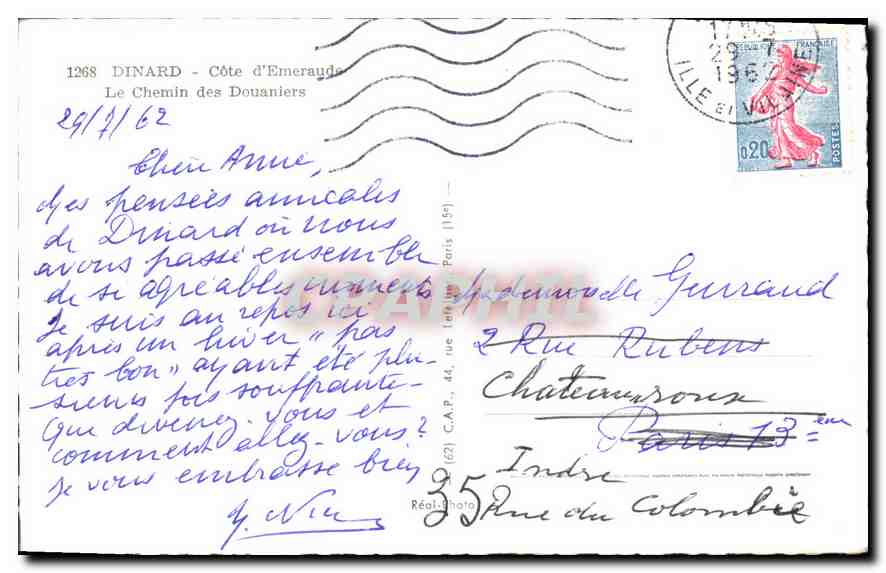 1268 DINARD - Côte d'Emeraude
Le Chemin des Douaniers
29/7/62
Chère Anne,
des pensées amicales
de Dinard où nous
avons passé ensemble
de si agréables moments
Je suis au repos ici
après un hiver "pas
très bon" ayant été plu-
sieurs fois souffrante-
Que divenez-vous et
comment allez-vous?
Je vous embrasse bien
(62) C.A.P., 44, rue Paris (15e)
Réal-Photo
29-7
1962
ILLE et VILAINE
REPUBLIQUE FRANÇAISE
0,20
POSTES
Mademoiselle Gurraud
2 Rue Rubens
Chateauroux
Paris 13 ème
Indre
35 Rue du Colombie
GRAPHIL